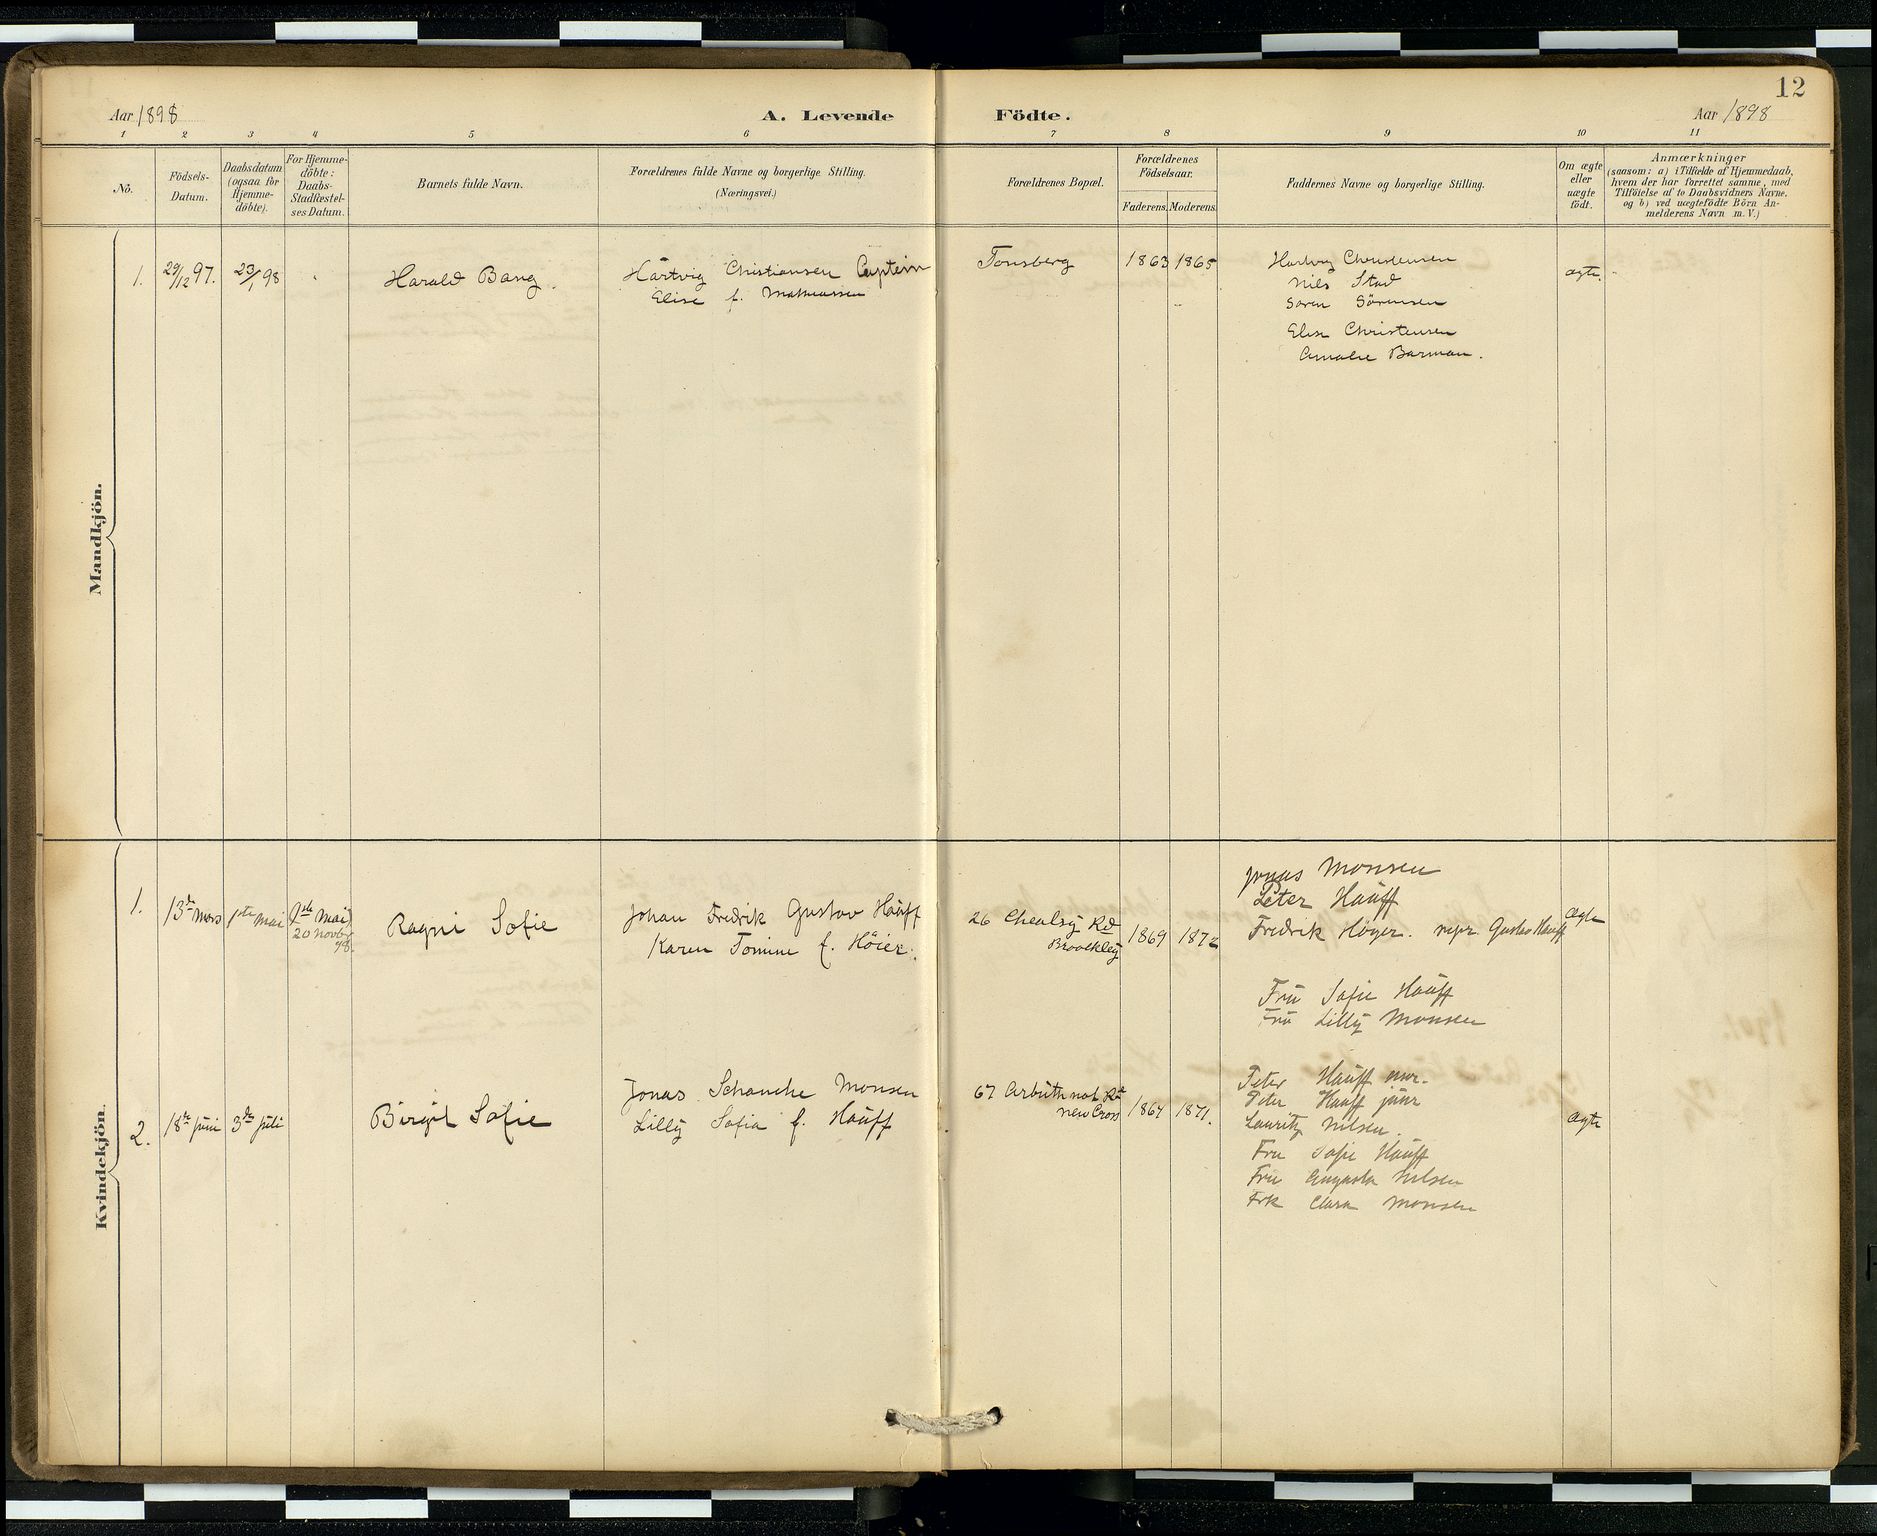 Aar 1898
A. Levende Födte.
Aar 1898
12
1 2 3 4 5 6 7 8 9 10 11
No.
Födsels-
Datum.
Daabsdatum
(ogsaa for
Hjemme-
döbte).
For Hjemme-
döbte:
Daabs-
Stadfæstel-
ses Datum.
Barnets fulde Navn.
Forældrenes fulde Navne og borgerlige Stilling.
(Næringsvei.)
Forældrenes Bopæl.
Forældrenes
Födselsaar.
Faderens. Moderens.
Faddernes Navne og borgerlige Stilling.
Om ægte
eller
uægte
födt.
Anmærkninger
(saasom: a) i Tilfælde af Hjemmedaab,
hvem der har forrettet samme, med
Tilföielse af to Daabsvidners Navne.
og b) ved uægtefödte Börn An-
melderens Navn m. V.)
Mandkjön.
1.
29/12 97.
23/1 98
Harald Bang.
Hartvig Christiansen Captein
Elise f. Mathiassen
Tonsberg
1863
1865
Hartvig Christensen
Nils Stad
Soren Sörensen
Elise Christensen
Amalie Barman.
ægte.
Kvindekjön.
1.
13de Mars
1ste Mai
1ste Mai
20 Novbr
98.
Ragni Sofie
Johan Fredrik Gustav Hauff
Karen Tomine f. Höier.
26 Chealsy Rd
Broolkley
1869
1872
Jonas Monsen
Peter Hauff
Fredrik Höyer. repr. Gustav Hauff
Fru Sofie Hauff
Fru Lilly Monsen
Ægte
2.
18de juni
3de juli
Birgit Sofie
Jonas Schanche Monsen
Lilly Sofia f. Hauff
67 Arbuthnot Rd
New Cross
1864
1871.
Peter Hauff
Peter Hauff junr
Lauritz Nilsen.
Fru Sofie Hauff
Fru Augusta Nilsen
Frk Clara Monsen
Ægte